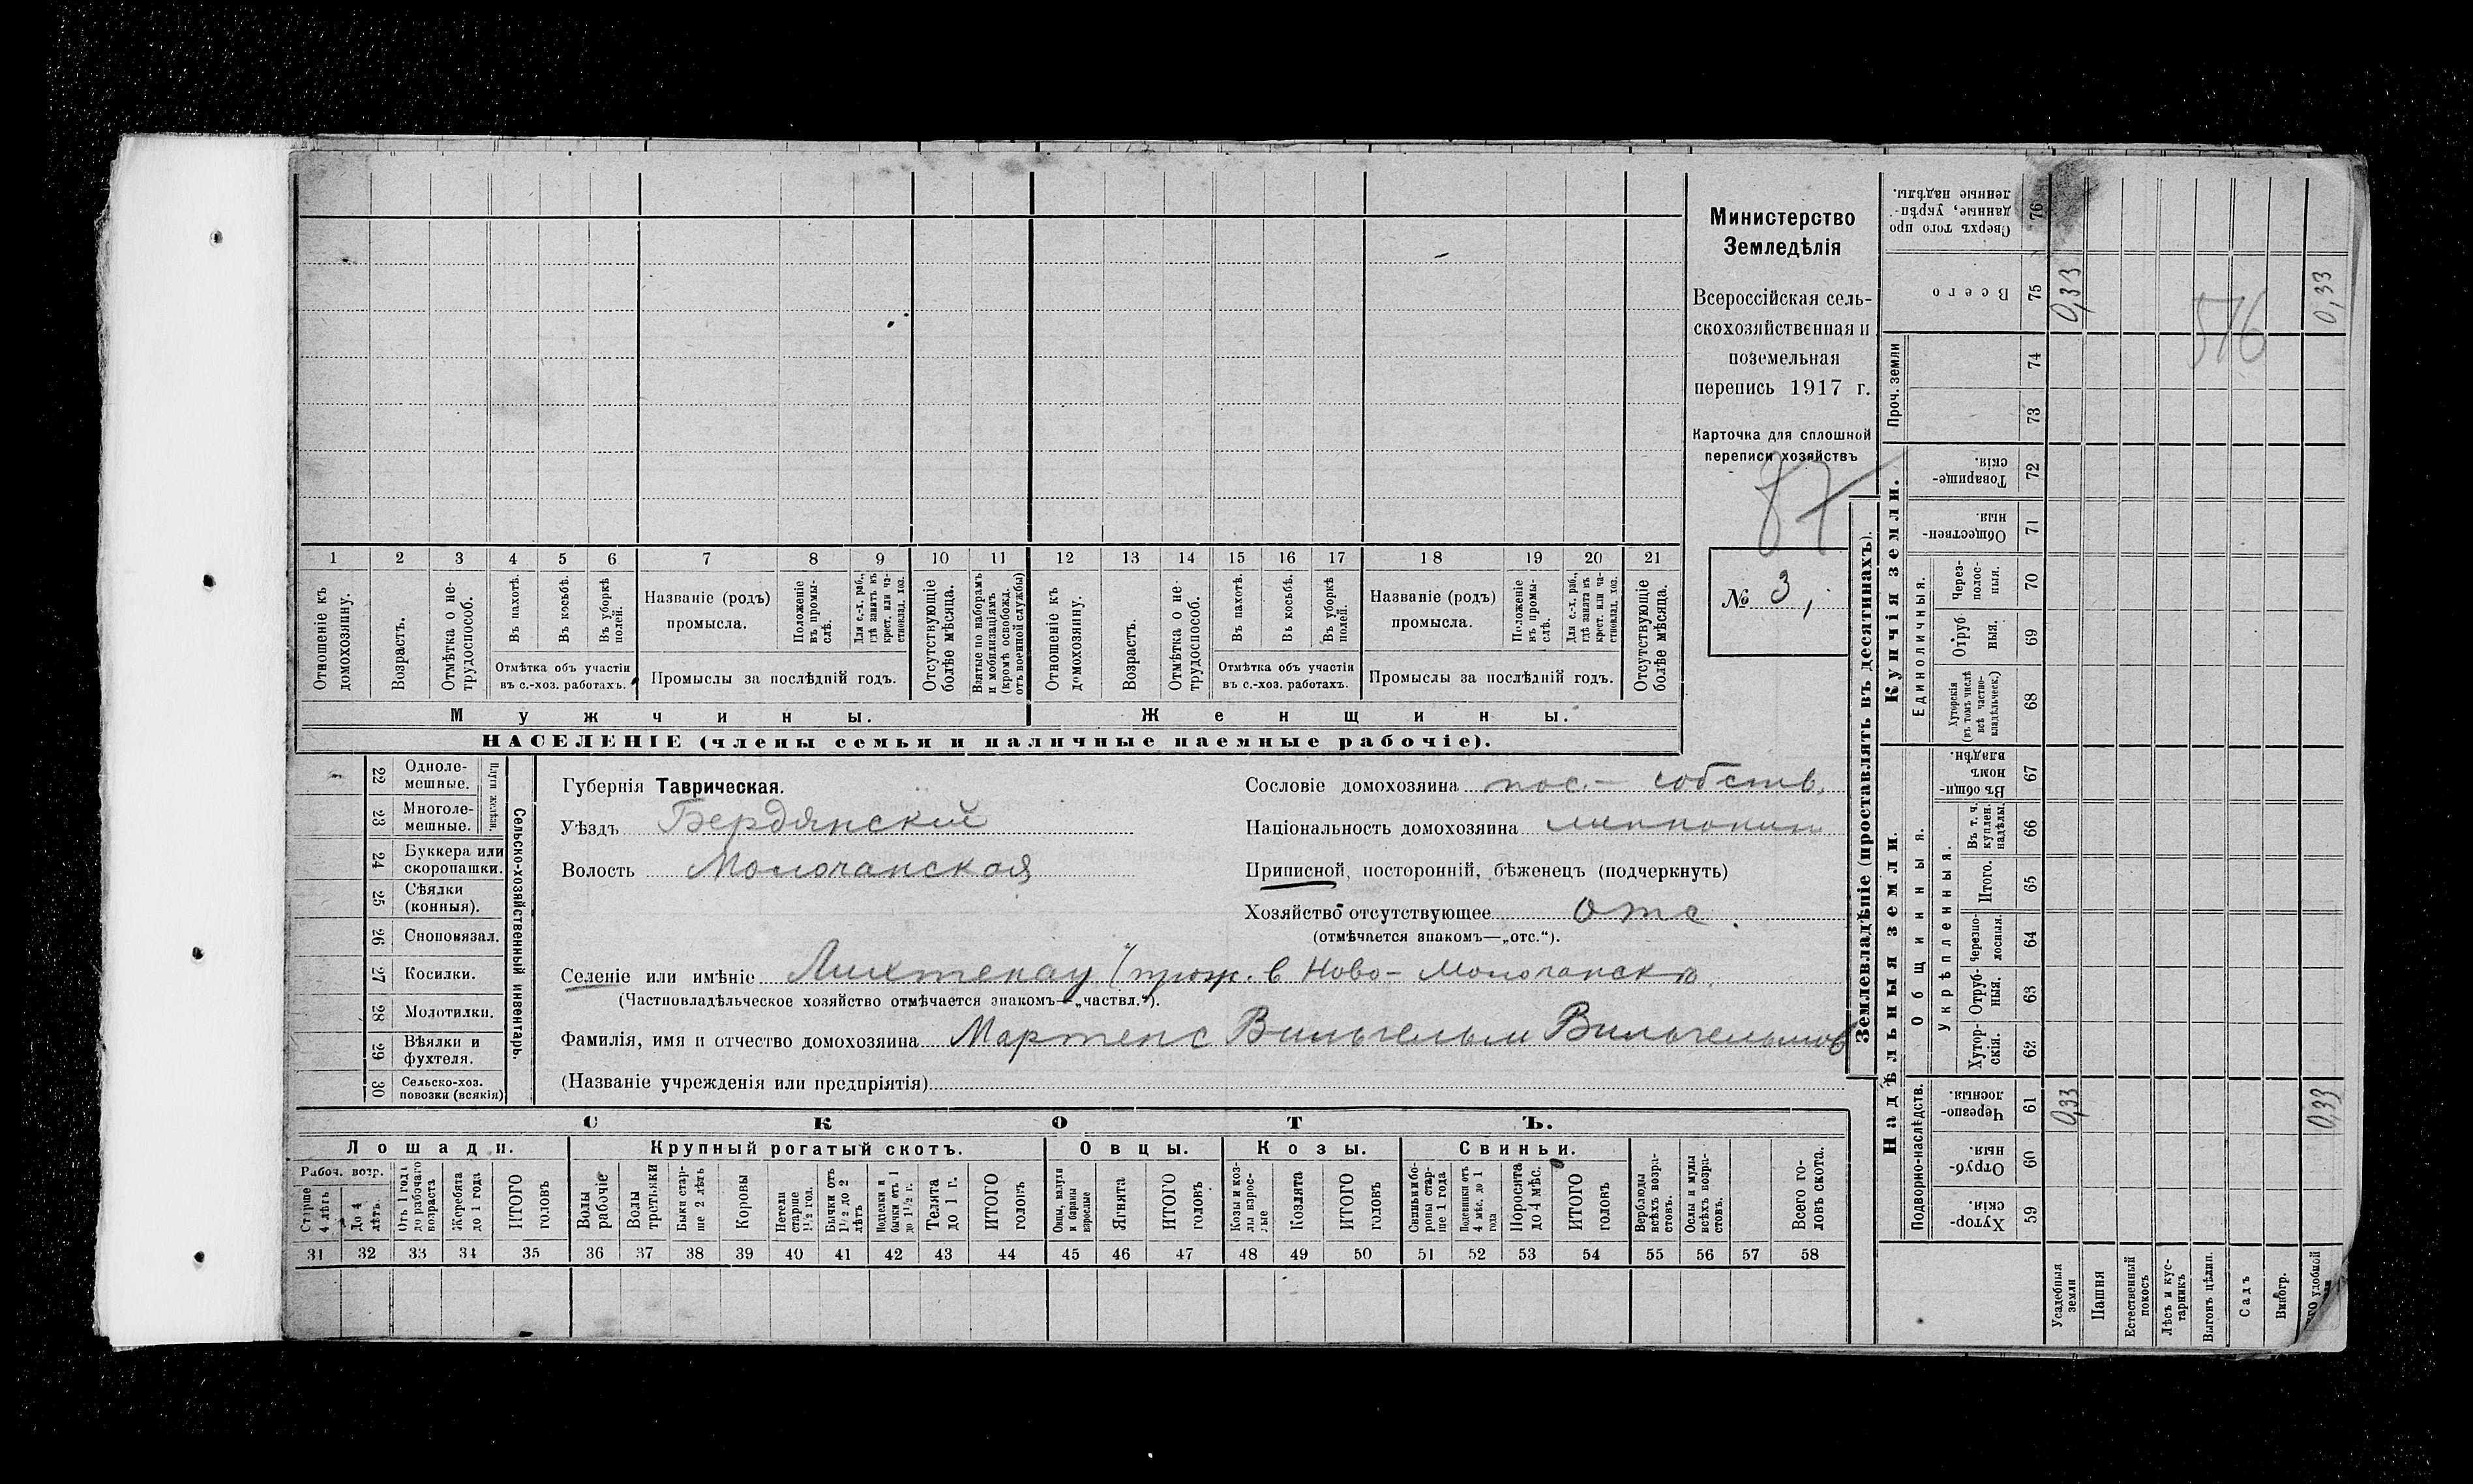 Министерство
Земледѣлія
Всероссійская сель-
скохозяйственная и
поземельная
перепись 1917 г.
Карточка для сплошной
переписи хозяйствъ
87
№ 3,
1 2 3 4 5 6 7 8 9 10 11 12 13 14 15 16 17 18 19 20 21
Отношеніе къ домохозяину.
Возрастъ.
Отмѣтка о не-трудоспособ.
Въ пахотѣ.
Въ косьбѣ.
Въ уборкѣ полей.
Отмѣтка объ участіи
въ с.-хоз. работахъ.
Названіе (родъ)
промысла.
Положеніе въ промы-слѣ.
Для с.-х. раб., гдѣ занятъ въ крест. или ча-стновлад. хоз.
Промыслы за послѣдній годъ.
Отсутствующіе болѣе мѣсяца.
Взятые по наборамъ и мобилизаціямъ (кромѣ освобожд. отъ военной службы)
Отношеніе къ домохозяину.
Возрастъ.
Отмѣтка о не-трудоспособ.
Въ пахотѣ.
Въ косьбѣ.
Въ уборкѣ полей.
Отмѣтка объ участіи
въ с.-хоз. работахъ.
Названіе (родъ)
промысла.
Положеніе въ промы-слѣ.
Для с.-х. раб., гдѣ занята въ крест. или ча-стновлад. хоз.
Промыслы за послѣдній годъ.
Отсутствующіе болѣе мѣсяца.
Мужчины. Женщины.
НАСЕЛЕНІЕ (члены семьи и наличные наемные рабочіе).
22 Однолемешные.
23 Многолемешные.
Плуги желѣзн.
24 Буккера или скоропашки.
25 Сѣялки (конныя).
26 Сноповязал.
27 Косилки.
28 Молотилки.
29 Вѣялки и фухтеля.
30 Сельско-хоз. повозки (всякія)
Сельско-хозяйственный инвентарь.
Губернія Таврическая.
Уѣздъ Бердянскій
Волость Молочанская
Сословіе домохозяина пос.- собств.
Національность домохозяина
Приписной, посторонній, бѣженецъ (подчеркнуть)
Хозяйство отсутствующее отс.
(отмѣчается знакомъ—„отс.“).
Селеніе или имѣніе Лихтенау (прож. в Ново-Молочанскѣ
(Частновладѣльческое хозяйство отмѣчается знакомъ—„частвл.“).
Фамилія, имя и отчество домохозяина Мартенс Вильгельм Вильгельмов
(Названіе учрежденія или предпріятія)
СКОТЪ.
Лошади. Крупный рогатый скотъ. Овцы. Козы. Свиньи.
Рабоч. возр.
Старше 4 лѣтъ
До 4 лѣтъ.
Отъ 1 года до рабочаго возраста
Жеребята до 1 года
ИТОГО головъ
Волы рабочіе
Волы третьяки
Быки стар-ше 2 лѣтъ
Коровы
Нетели старше 1½ год.
Бычки отъ 1½ до 2 лѣтъ
Подтелки и бычки отъ 1 до 1½ г.
Телята до 1 г.
ИТОГО головъ
Овцы, валухи и бараны взрослые
Ягнята
ИТОГО головъ
Козы и коз-лы взрос-лые
Козлята
ИТОГО головъ
Свиньи и бо-ровы стар-ше 1 года
Подсвинки отъ 4 мѣс. до 1 года
Поросята до 4 мѣс.
ИТОГО головъ
Верблюды всѣхъ возра-стовъ.
Ослы и мулы всѣхъ возра-стовъ.
Всего го-ловъ скота.
31 32 33 34 35 36 37 38 39 40 41 42 43 44 45 46 47 48 49 50 51 52 53 54 55 56 57 58
Землевладѣніе (проставлять въ десятинахъ).
Надѣльныя земли. Купчія земли.
Подворно-наслѣдств.
Общинныя.
Укрѣпленныя.
Единоличныя.
Проч. земли
Хутор-скія 59
Отруб-ныя. 60
Черезпо-лосныя. 61
Хутор-скія. 62
Отруб-ныя. 63
Черезпо-лосныя. 64
Итого. 65
Въ т. ч. куплен. надѣлы. 66
Въ общи-номъ владѣн. 67
Хуторскія (въ томъ числѣ всѣ частно-владѣльческ.) 68
Отруб ныя. 69
Через-полос-ныя. 70
Обществен-ныя. 71
Товарище-скія. 72
73
74
Всего 75
Сверхъ того про данные, укрѣп-ленные надѣлы. 76
Усадебныя земли 0,33 0,33
Пашня
Естественный покосъ
Лѣсъ и кус-тарникъ
Выгонъ цѣлин.
Садъ
Виногр.
удобной 0,33 0,33
516